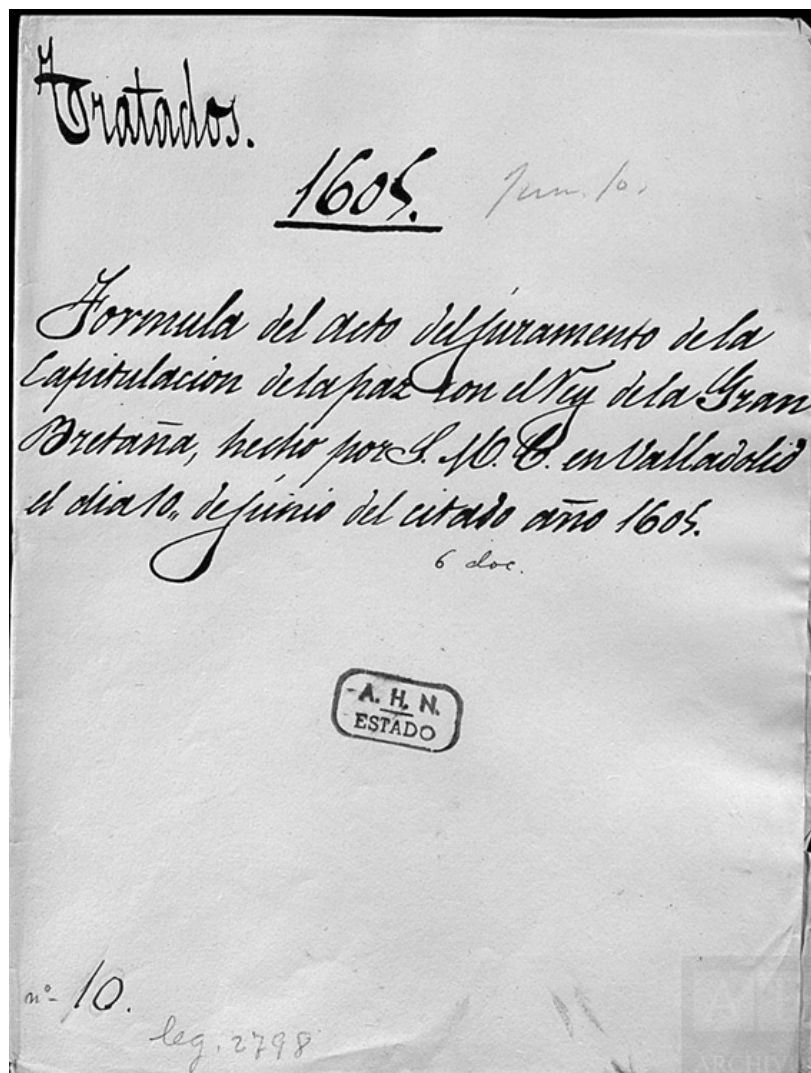 Tratados.
1605. Jun. 10.
Formula del acto del juramento de la
Capitulacion de la paz con el Rey de la Gran
Bretaña, hecho por S. M. C. en Valladolid
el dia 10,, de junio del citado año 1605.
6 doc.
A. H. N.
ESTADO
nº- 10.
leg. 2798
ARCHIV